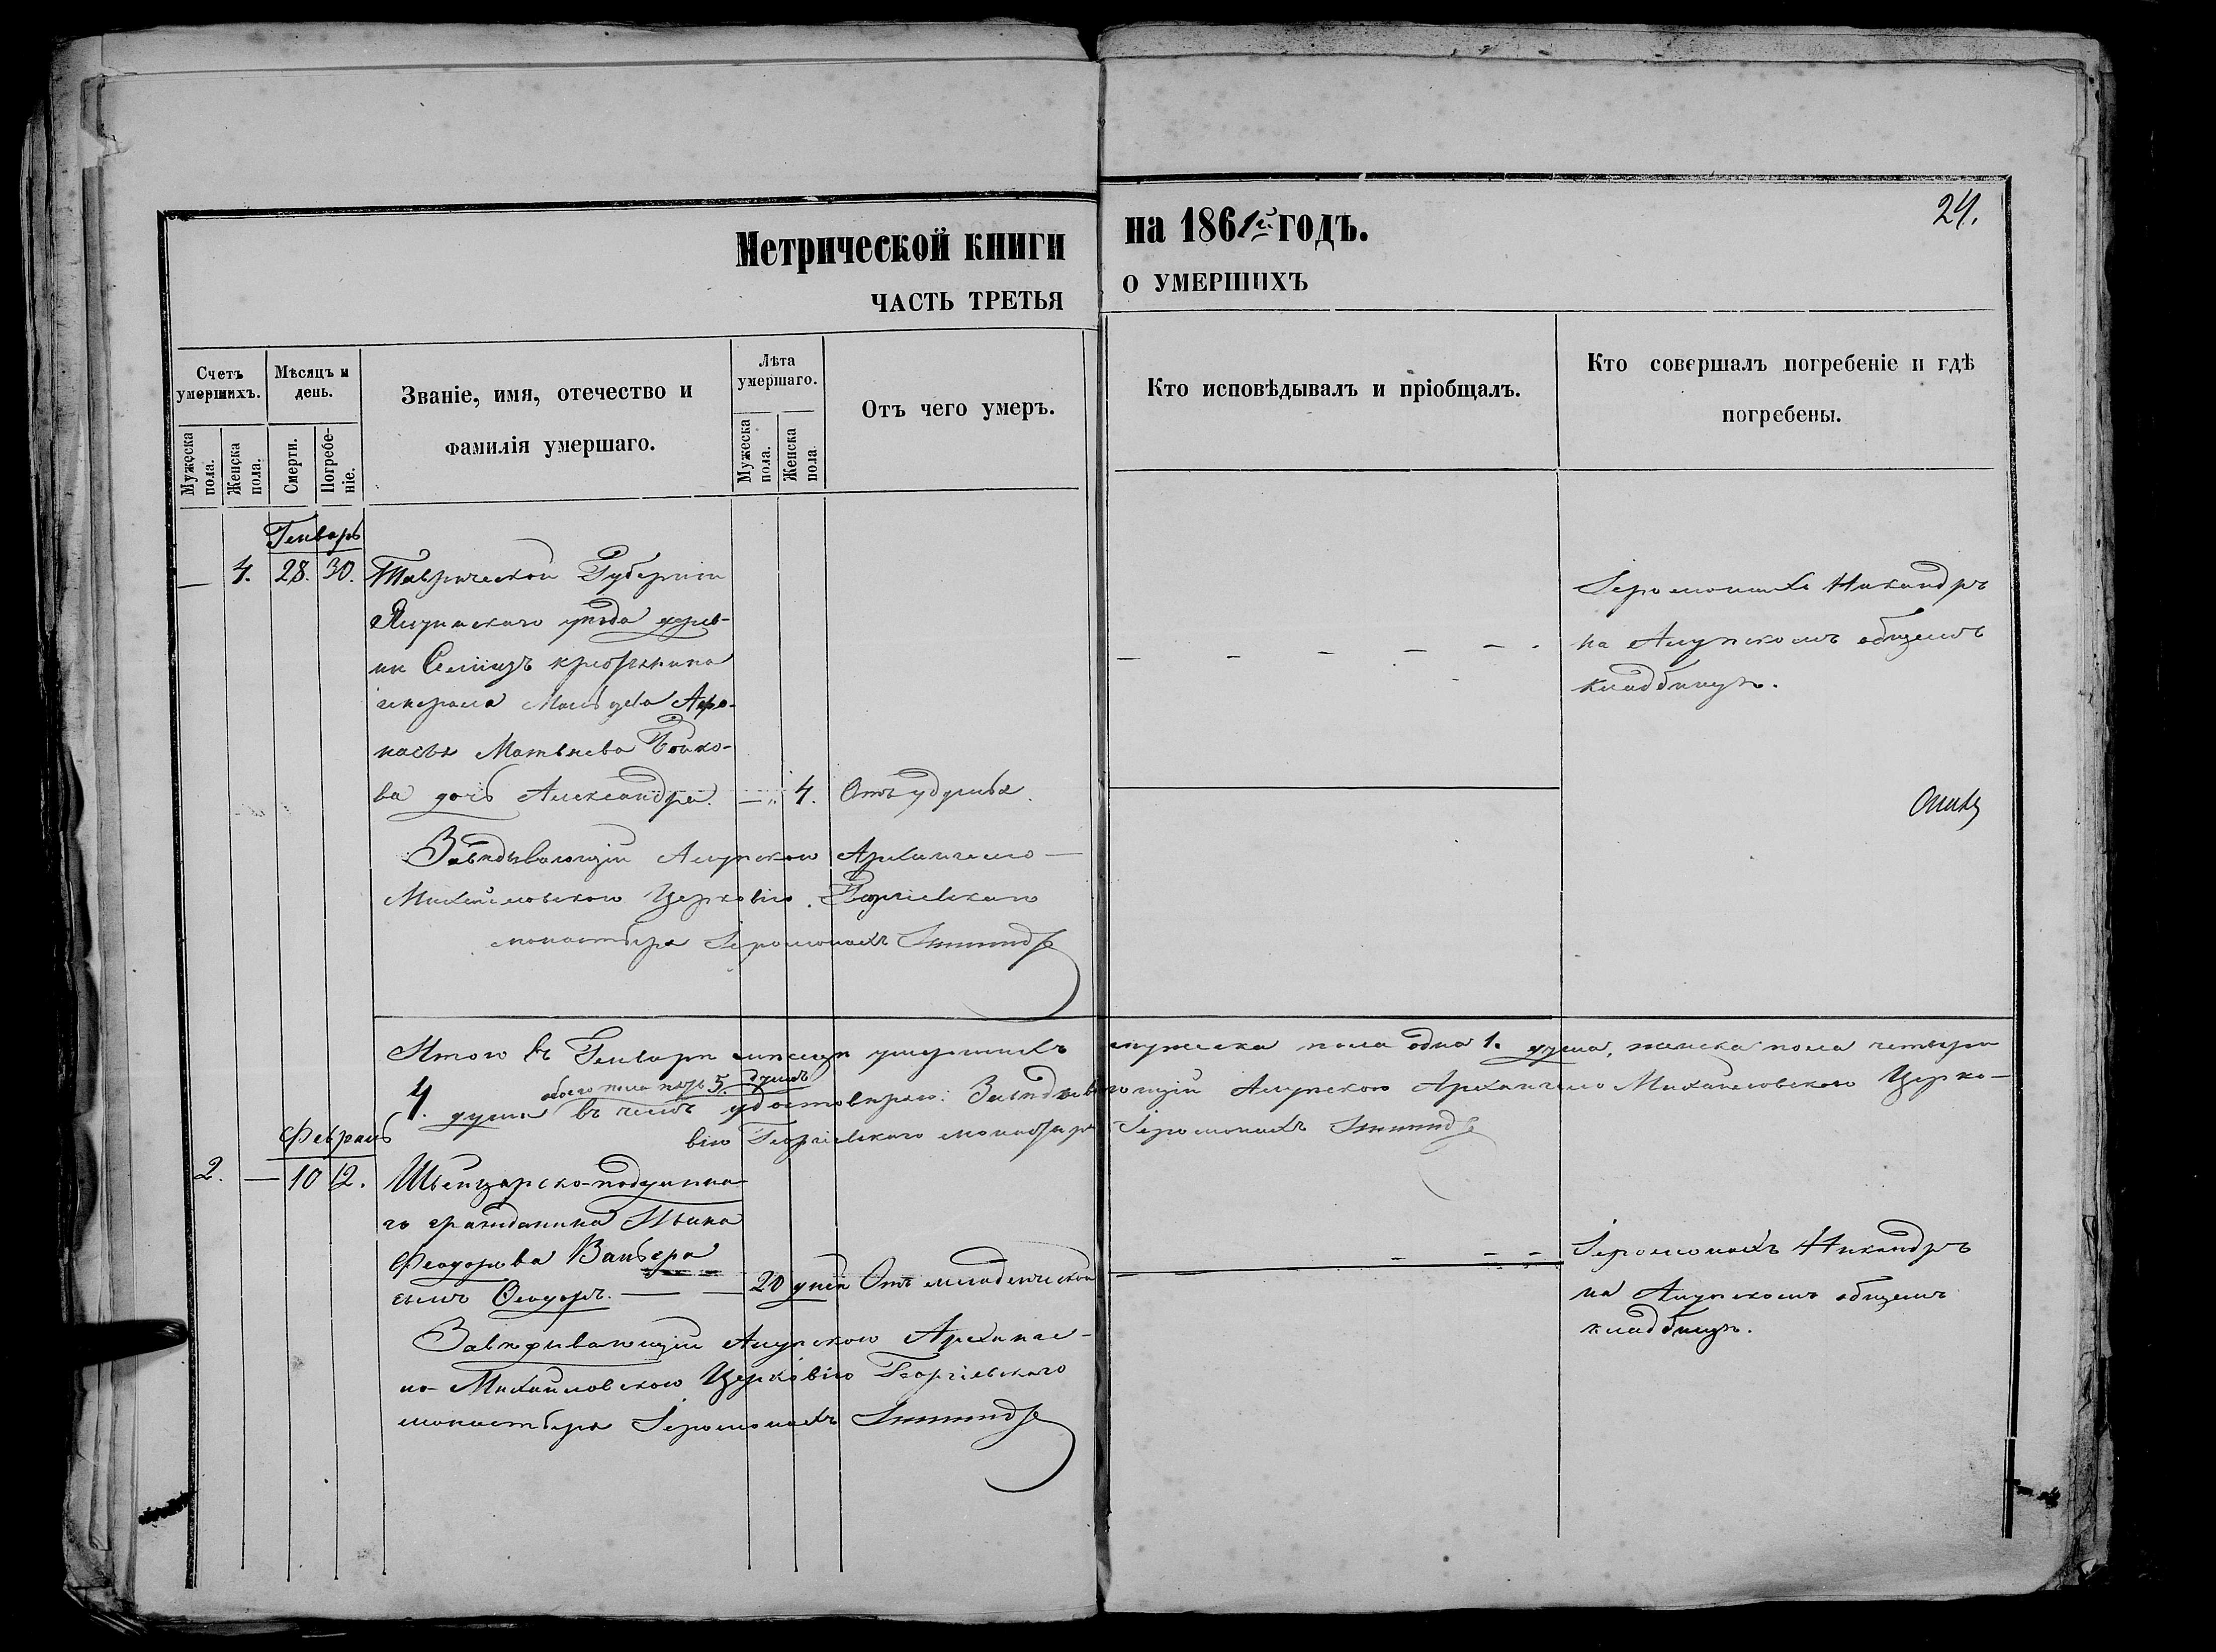 24.
Метрической книги на 1861й годъ.
ЧАСТЬ ТРЕТЬЯ О УМЕРШИХЪ
Счетъ умершихъ.
Мужеска пола.
Женска пола.
Мѣсяцъ и день.
Смерти.
Погребеніе.
Званіе, имя, отечество и фамилія умершаго.
Лѣта умершаго.
Мужеска пола.
Женска пола.
Отъ чего умеръ.
Кто исповѣдывалъ и пріобщалъ.
Кто совершалъ погребеніе и гдѣ погребены.
Генварь
— 4. 28. 30. Таврической Губерніи
Ялтинскаго уѣзда дерев-
ни Семіизъ крестьянина
генерала Мальцова Афо-
насья Матвѣева Бойко-
ва дочь Александра. — 4. Отъ удушья.
Іеромонахъ Никандръ
на Алупскомъ общемъ
кладбищѣ.
Завѣдывающій Алупскою Архангело-
Михайловскою Церковію. Георгіевскаго
монастыря Іеромонахъ Никандръ
Итого въ Генварѣ мѣсяцѣ умершихъ мужеска пола одна 1. душа, женска пола четыре
обоего пола пять 5. душъ
4. души въ чемъ удостовѣряю: Завѣдывающій Алупскою Архангело Михайловскою Церко-
вію Георгіевскаго монастыря Іеромонахъ Никандръ
Февраль
2. — 10 12. Швейцарско-подданна-
го гражданина Ивана
Феодорова Ваньера
сынъ Феодоръ. — — 20 дней Отъ младенческой
Іеромонахъ Никандръ
на Алупскомъ общемъ
кладбищѣ.
Завѣдывающій Алупскою Архангел-
о-Михайловскою Церковію Георгіевскаго
монастыря Іеромонахъ Никандръ